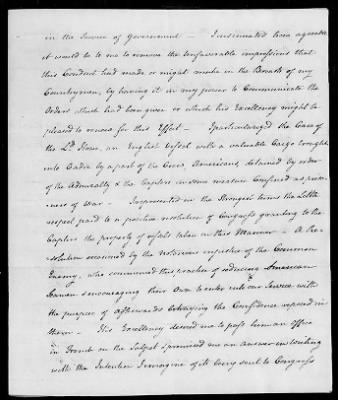 in the Service of Government — I insinuated how agreeable
it would be to me to remove the unfavorable impressions that
this Conduct had made or might make in the Breasts of my
Countrymen, by having it in my power to Communicate the
Orders which had been given or which his Excellency might be
pleased to renew for this Effect — I particularized the Case of
the Ld. Howe, an English Vessel with a valuable Cargo brought
into Cadiz by a part of the Crew, Americans, detained by order
of the Admiralty & the Captors in some measure Confined as priso-
ners of War — I represented in the Strongest terms the Little
respect paid to a positive resolution of Congress granting to the
Captors the property of vessels taken in this Manner — A Re-
solution occasioned by the notorious injustice of the Common
Enemy, who commenced this practice of seducing American
Seamen & encouraging their Own to enter into our Service with
the purpose of afterwards betraying the Confidence reposed in
them — His Excellency desired me to pass him an Office
in French on the Subject & promised me an answer in writing
with the Intention I imagine of its being sent to Congress